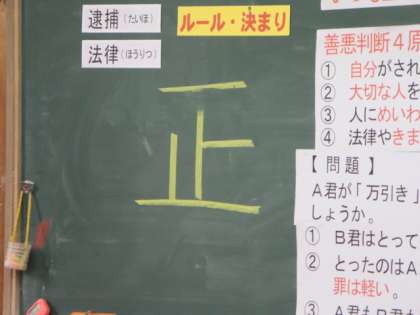 逮捕（たいほ）
法律（ほうりつ）
ルール・決まり
正
善悪判断４原
① 自分がされ
② 大切な人を
③ 人にめいわ
④ 法律やきま
【 問 題 】
Ａ君が「万引き」
しょうか。
① Ｂ君はとって
② とったのはＡ
罪は軽い。